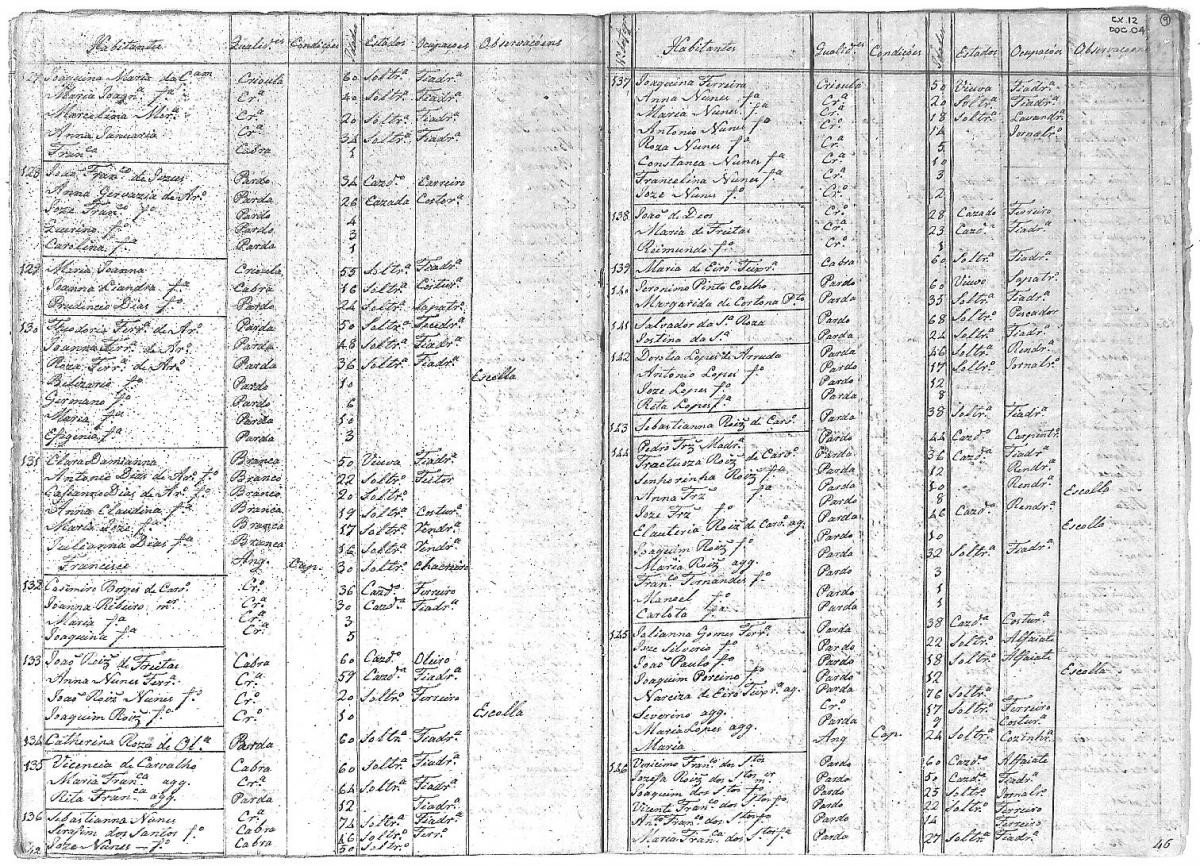 CX.12
DOC.04
9
Habitantes Qualid.es Condições Idades Estados Ocupaçoes Observaçoens
127 Joaquina Maria da Cam Crioula 60 Soltr.ª Fiadr.ª
Maria Joaqn.ª f.ª Cr.ª 40 Soltr.ª Fiadr.ª
Marcelina Cr.ª 20 Soltr.ª Fiadr.ª
Anna Januaria Cr.ª 34 Soltr.ª Fiadr.ª
Fran.ca Cabra 1
128 João Fran.co de Jezus Pardo 34 Cazd.º Carreiro
Anna Gervazia de Ar.º Parda 26 Cazada Costur.ª
Joze Fran.co f.º Pardo 4
f.º Pardo 3
Carolina f.ª Parda 1
129 Maria Joanna Crioula 55 Soltr.ª Fiadr.ª
Joanna Liandra f.ª Cabra 16 Soltr.ª Costur.ª
Prudencio Dias f.º Pardo 24 Soltr.º Sapatr.º
130 Theodoria Ferr.ª de Ar.º Parda 50 Soltr.ª Tecedr.ª
Joanna Ferr.ª de Ar.º Parda 48 Soltr.ª Fiadr.ª
Roza Ferr.ª de Ar.º Parda 36 Soltr.ª Fiadr.ª
Belizario f.º Pardo 10 Escolla
Germano f.º Pardo 6
Maria f.ª Parda 10
Efigenia f.ª Parda 3
131 Clara Damianna Branca 50 Viuva Fiadr.ª
Antonio Dias de Ar.º f.º Branco 22 Soltr.º Feitor
Dias de Ar.º f.º Branco 20 Soltr.º
Anna Claudina f.ª Branca 19 Soltr.ª Costur.ª
Maria Joze f.ª Branca 17 Soltr.ª Vendr.ª
Julianna Dias f.ª Branca 16 Soltr.ª Vendr.ª
Francisco Ang. Cap. 30 Soltr.º Chacreiro
132 Casimiro Borges de Carv.º Cr.º 36 Cazd.º Ferreiro
Joanna Ribeiro m.er Cr.ª 30 Cazd.ª Fiadr.ª
Maria f.ª Cr.ª 3
Joaquina f.ª Cr.ª 5
133 João Roiz de Freitas Cabra 60 Cazd.º Oleiro
Anna Nunes Ferr.ª Cr.ª 59 Cazd.ª Fiadr.ª
João Roiz Nunes f.º Cr.º 20 Soltr.º Ferreiro
Joaquim Roiz f.º Cr.º 10 Escolla
134 Catherina Roza de Ol.ª Parda 60 Soltr.ª Fiadr.ª
135 Vicencia de Carvalho Cabra 60 Soltr.ª Fiadr.ª
Maria Fran.ca agg. Cr.ª 64 Soltr.ª Fiadr.ª
Rita Fran.ca agg. Parda 12 Fiadr.ª
136 Sebastianna Nunes Cr.ª 74 Soltr.ª Fiadr.ª
Serafim dos Santos f.º Cabra 46 Soltr.º Ferr.º
Joze Nunes f.º Cabra 50 Soltr.º
Habitantes Qualid.es Condições Idades Estados Ocupações Observaçoens
137 Joaquina Ferreira Crioula 50 Viuva Fiadr.ª
Anna Nunes f.ª Cr.ª 20 Soltr.ª Fiadr.ª
Maria Nunes f.ª Cr.ª 18 Soltr.ª Lavandr.ª
Antonio Nunes f.º Cr.º 14 Jornalr.º
Roza Nunes f.ª Cr.ª 5
Constanca Nunes f.ª Cr.ª 10
Francelina Nunes f.ª Cr.ª 3
Joze Nunes f.º Cr.º 2
138 João de Deos Cr.º 28 Cazado Ferreiro
Maria de Freitas Cr.ª 23 Cazd.ª Fiadr.ª
Reimundo f.º Cr.º 1
139 Maria de Cabra 60 Soltr.ª Fiadr.ª
140 Jeronimo Pinto Coelho Pardo 60 Viuvo Sapatr.º
Margarida de Cortona P.to Parda 35 Soltr.ª Fiadr.ª
141 Salvador da S.ª Roza Pardo 68 Soltr.º Pescador
Jostina da S.ª Parda 24 Soltr.ª Fiadr.ª
142 Dorotea Lopes de Arruda Parda 46 Soltr.ª Rendr.ª
Antonio Lopes f.º Pardo 17 Soltr.º Jornalr.º
Joze Lopes f.º Pardo 12
Rita Lopes f.ª Parda 8
143 Sebastianna Roiz de Carv.º Parda 38 Soltr.ª Fiadr.ª
144 Pedro Frz Madr.ª Pardo 44 Cazd.º Carpentr.º
Roiz de Carv.º Parda 36 Cazd.ª Fiadr.ª
Senhorinha Roiz f.ª Parda 12 Rendr.ª
Anna Frz f.ª Parda 10 Rendr.ª
Joze Frz f.º Pardo 8 Escolla
Elauteria Roiz de Carv.º ag. Parda 46 Cazd.ª Rendr.ª
Joaquim Roiz f.º Pardo 10 Escolla
Maria Roiz agg. Parda 32 Soltr.ª Fiadr.ª
Fran.co Fernandes f.º Pardo 3
Manoel f.º Pardo 1
Carlota f.ª Parda 1
145 Julianna Gomes Ferr.ª Parda 38 Cazd.ª Costur.ª
Joze Silverio f.º Pardo 22 Soltr.º Alfaiate
João Paulo f.º Pardo 18 Soltr.º Alfaiate
Joaquim f.º Pardo 12 Escolla
Narciza de ag. Parda 76 Soltr.ª
Severino agg. Cr.º 17 Soltr.º Ferreiro
Maria Lopes agg. Parda 9 Costur.ª
Maria Ang Cap. 24 Soltr.ª Cozinhr.ª
146 Fran.co dos S.tos Pardo 60 Cazd.º Alfaiate
Jozefa Roiz dos S.tos m.er Parda 50 Cazd.ª Fiadr.ª
Joaquim dos S.tos f.º Pardo 25 Soltr.º Jornalr.º
Vicente Fran.co dos S.tos f.º Pardo 22 Soltr.º Ferreiro
Fran.co dos S.tos f.º Pardo 14 Ferreiro
Maria Fran.ca dos S.tos f.ª Parda 27 Soltr.ª Fiadr.ª
46